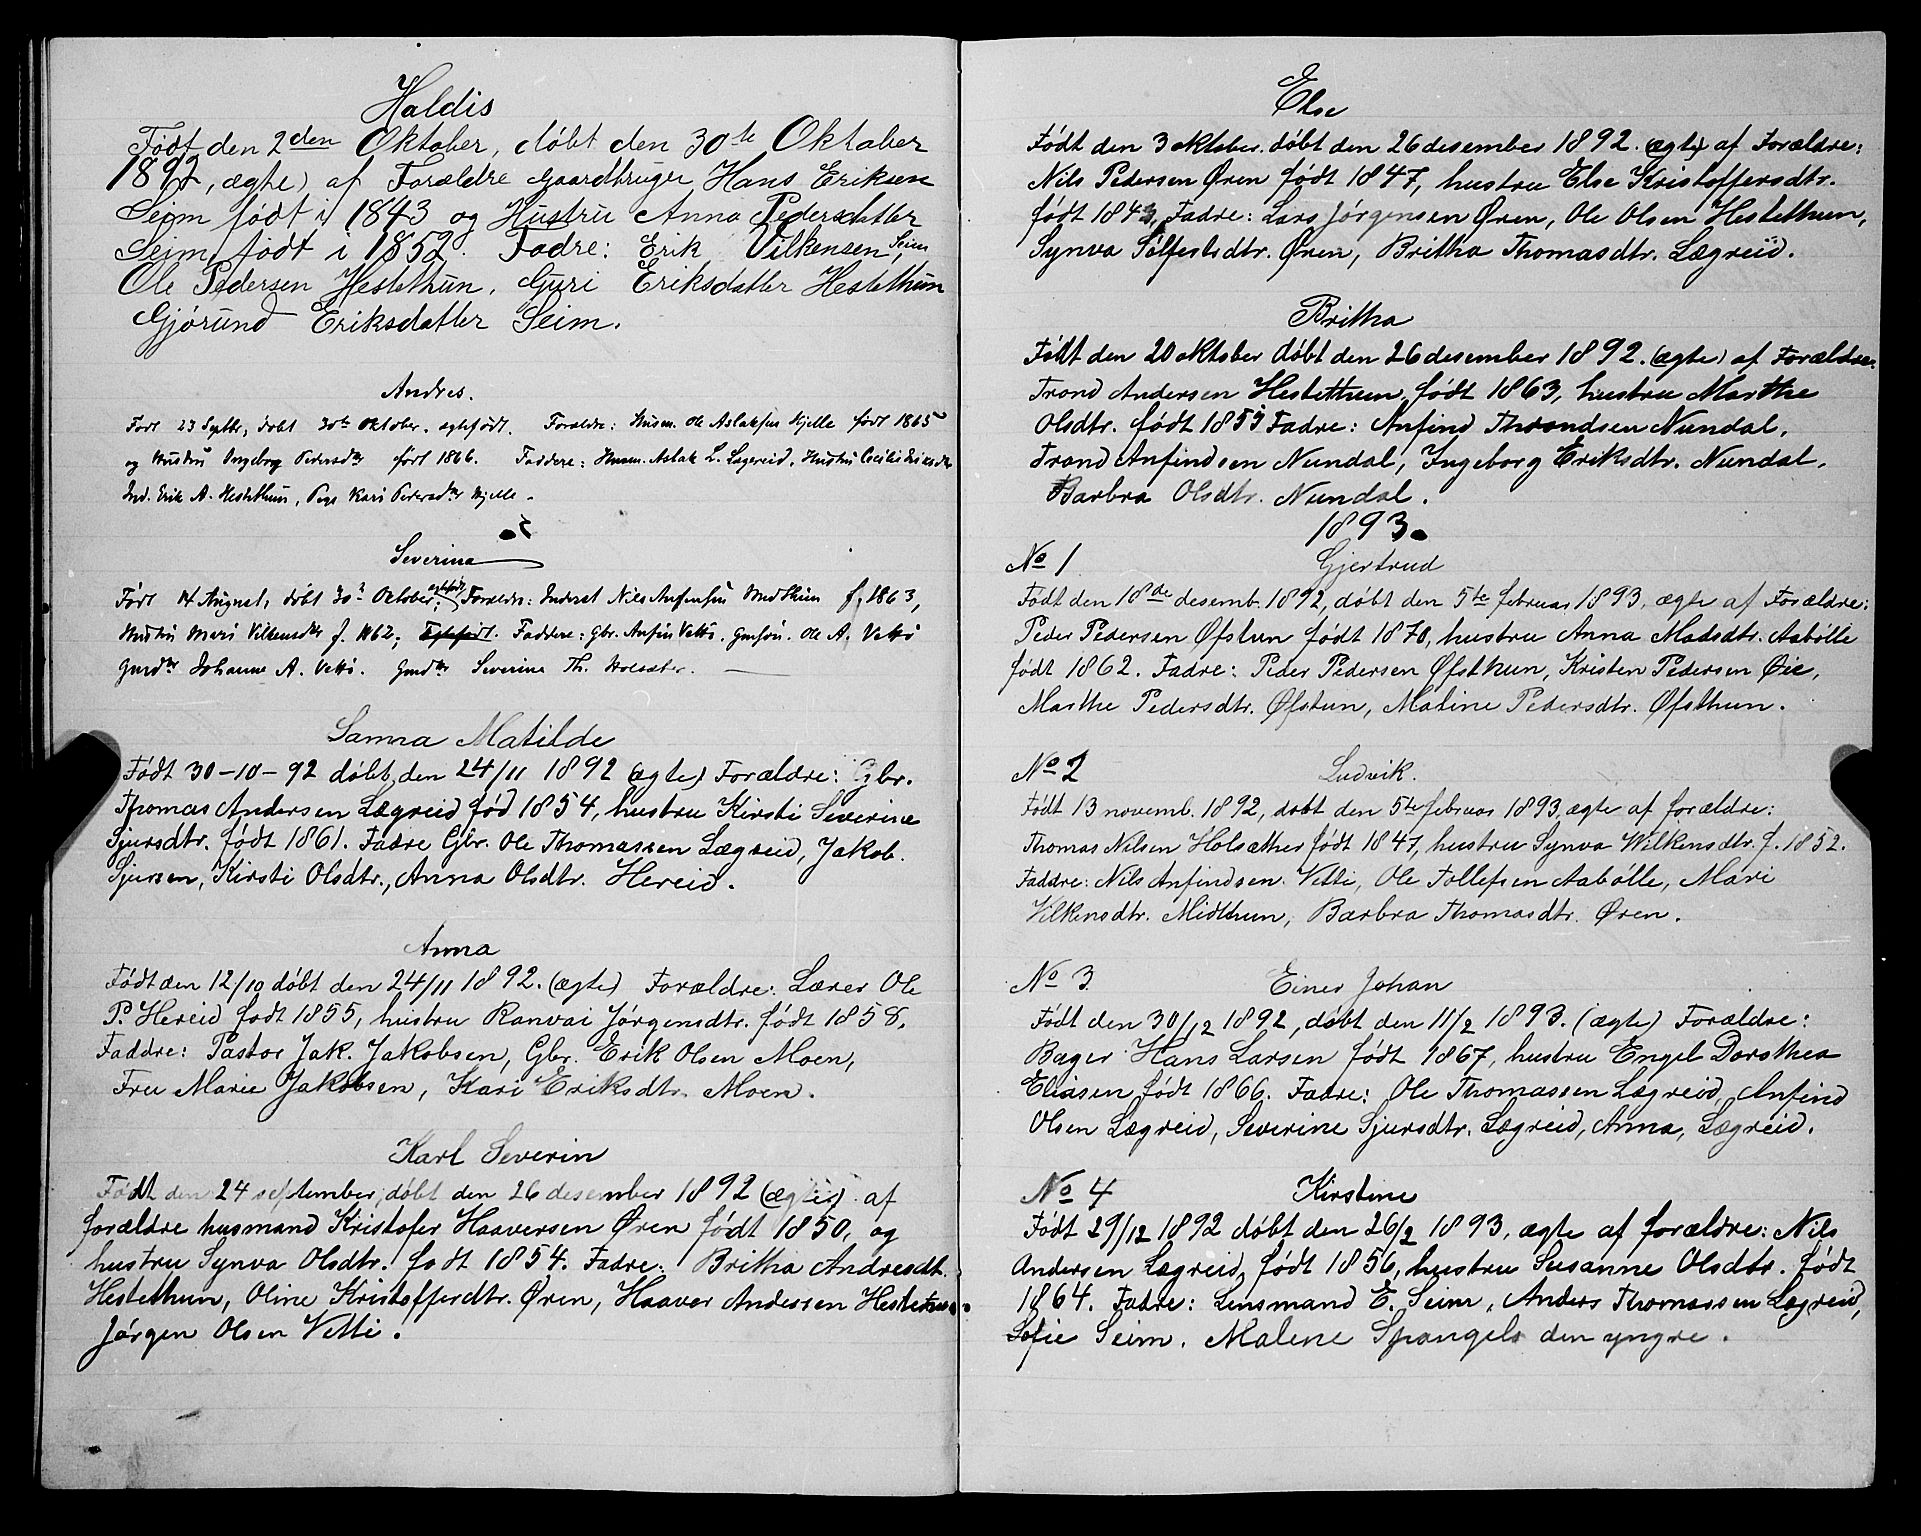 Haldis
Født den 2den Oktober, døbt den 30te Oktober
1892, ægte) af Forældre Gaardbruger Hans Eriksen
Seim født i 1843 og Hustru Anna Pedersdatter
Seim født i 1852. Fadre: Erik Vilkensen Seim,
Ole Pedersen Hestethun, Guri Eriksdatter Hestethun
Gjørund Eriksdatter Seim.
Andres.
Født 23 Septbr, døbt 30te Oktober. egtefødt. Forældre: Husm. Ole Aslaksen Hjelle født 1865
og Hustru Ingeborg Pedersdtr født 1866. Faddere: Husm. Aslak L. Lægreid. Hustru Cecilie Eriksdtr
Ind. Erik A. Hestethun, Pige Kari Pedersdtr Hjelle.
Severina
Født 14 August, døbt 30 Oktober, egtefødt, Forældre: Inderst Nils Anfinsen Midthun f. 1863,
Hustru Mari Vilkensdtr f. 1862; Egtefødt. Faddere: Gbr. Anfin Vetti, Gmsøn. Ole A. Vetti
Gmdtr Johanne A. Vetti. Gmdtr Severina Th. Holsæter.
Sanna Matilde
Født 30-10-92 døbt den 24/11 1892 (ægte) Forældre: Gbr.
Thomas Andersen Lægreid fød 1854, hustru Kirsti Severine
Sjursdtr. født 1861. Fadre Gbr. Ole Thomassen Lægreid, Jakob.
Sjursen, Kirsti Olsdtr., Anna Olsdtr. Hereid.
Anna
Født den 12/10 døbt den 24/11 1892. (ægte) Forældre: Lærer Ole
P. Hereid født 1855, hustru Ranvai Jørgensdtr. født 1858.
Faddre: Pastor Jak. Jakobsen, Gbr. Erik Olsen Moen,
Fru Marie Jakobsen, Kari Eriksdtr. Moen.
Karl Severin
Født den 24 september, døbt den 26 desember 1892 (ægte) af
forældre husmand Kristofer Haaversen Øren født 1850, og
hustru Synva Olsdtr. født 1854. Fadre: Britha Andresdt.
Hestethun, Oline Kristofferdtr. Øren, Haaver Andersen Hestethun.
Jørgen Olsen Vetti.
Else
Født den 3 oktober. døbt den 26 desember 1892. (ægte) af Forældre:
Nils Pedersen Øren født 1847, hustru Else Kristoffersdtr.
født 1843, Fadre: Lars Jørgensen Øren, Ole Olsen Hestethun,
Synva Sølfestsdtr. Øren, Britha Thomasdtr. Lægreid.
Britha
Født den 20 oktober døbt den 26 desember 1892. (ægte) af Forældre
Trond Andersen Hestetthun, født 1863, hustru Marthe
Olsdtr. født 1855 Fadre: Anfind Throndsen Nundal,
Trond Anfindsen Nundal, Ingeborg Eriksdtr. Nundal.
Barbra Olsdtr. Nundal.
1893.
No 1 Gjertrud
Født den 18de desemb. 1892, døbt den 5te februar 1893, ægte af Forældre:
Peder Pedersen Øfstun født 1870, hustru Anna Madsdtr. Aabølle
født 1862. Fadre: Peder Pedersen Øfsthun, Kristen Pedersen Øie,
Marthe Pedersdtr. Øfstun, Maline Pedersdtr. Øfsthun.
No 2 Ludvik.
Født 13 novemb. 1892, døbt den 5te februar 1893, ægte af forældre:
Thomas Nilsen Holsæther født 1847, hustru Synva Wilkensdtr. f. 1852.
Faddre: Nils Anfindsen Vetti, Ole Tollefsen Aabølle, Mari
Vilkensdtr. Midthun, Barbra Thomasdtr. Øren.
No 3 Einer Johan
Født den 30/12 1892, døbt den 11/2 1893. (ægte) Forældre:
Bager Hans Larsen født 1867, hustru Engel Dorothea
Eliasen født 1866. Fadre: Ole Thomassen Lægreid, Anfind
Olsen Lægreid, Severine Sjursdtr. Lægreid, Anna, Lægreid.
No 4 Kirstine
Født 29/12 1892 døbt den 26/2 1893, ægte af forældre: Nils
Andersen Lægreid, født 1856, hustru Susanne Olsdtr. født
1864. Fadre: Lensmand E. Seim, Anders Thomassen Lægreid,
Sofie Seim. Malene Spangelo den yngre.